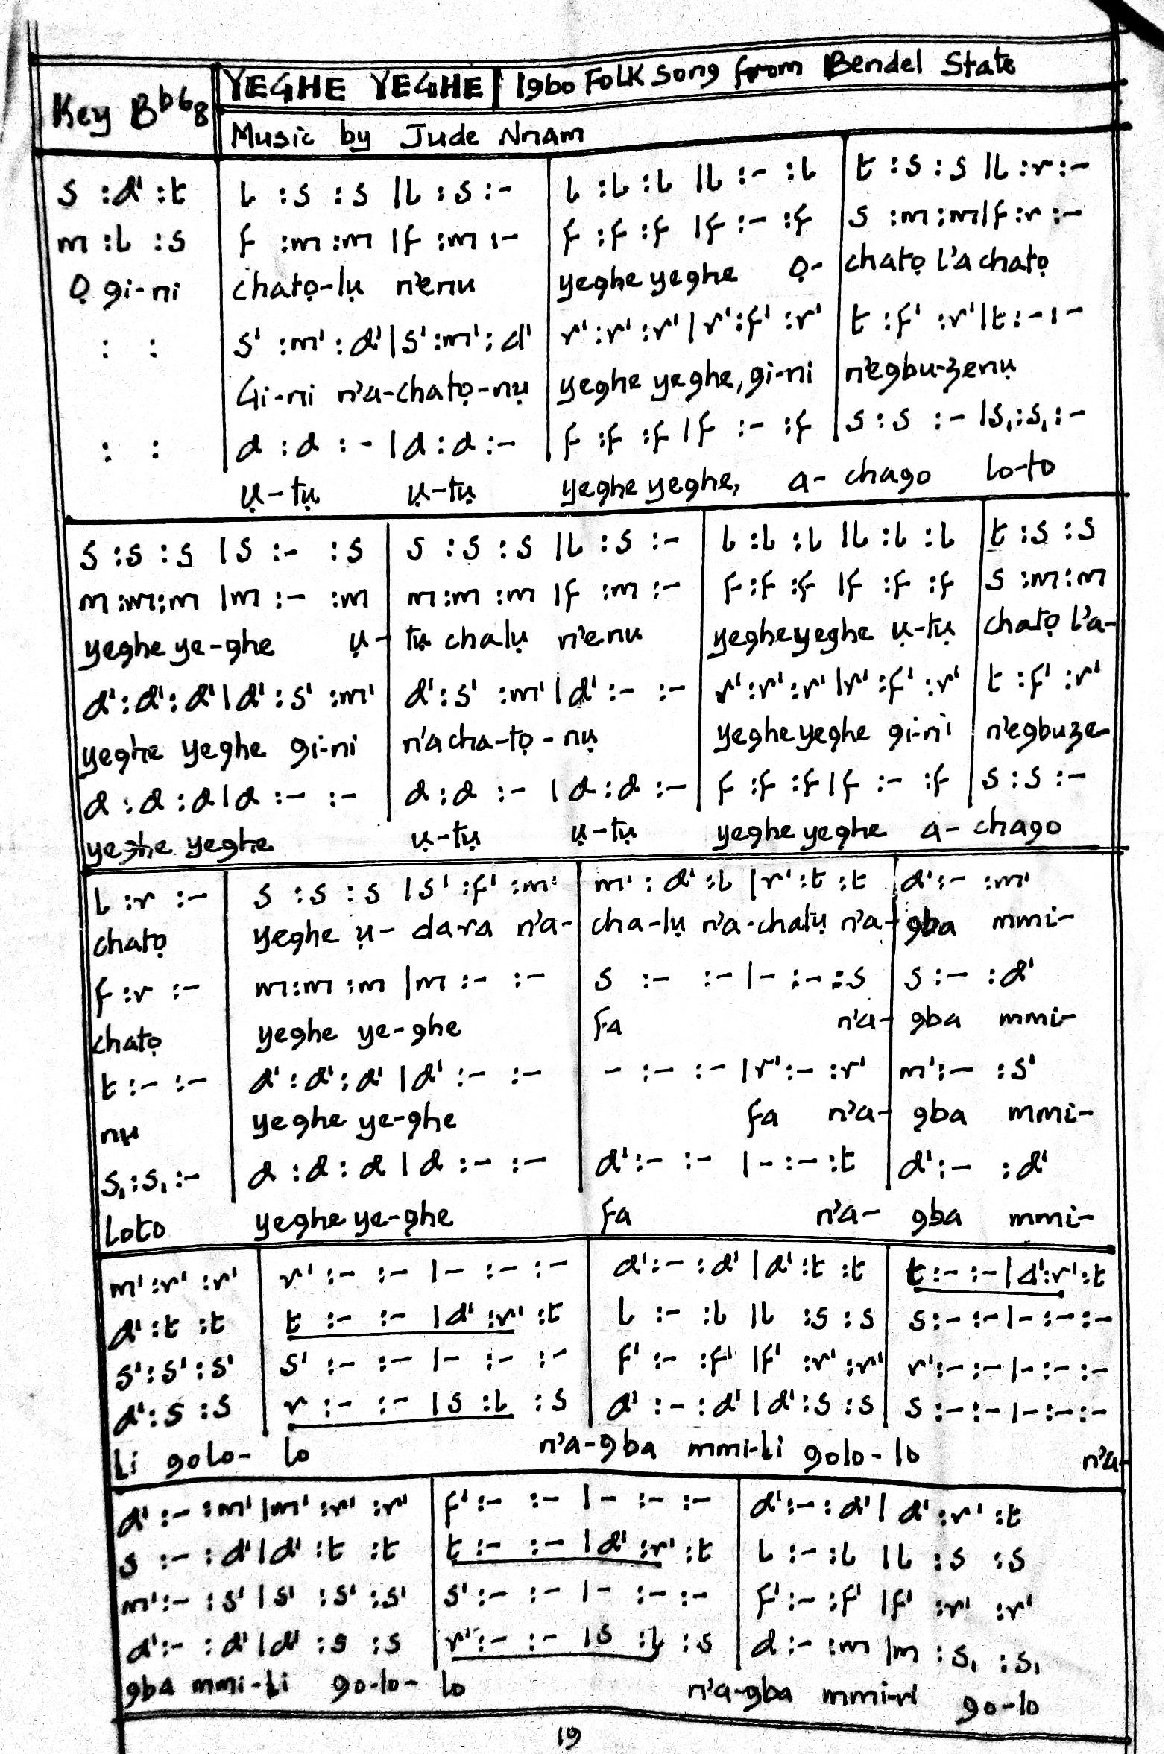 Key Bb 6/8 YEGHE YEGHE Igbo Folk song from Bendel State
Music by Jude Nnam
s :d' :t | l :s :s |l :s :- | l :l :l |l :- :l | t :s :s |l :r :-
m :l :s | f :m :m |f :m :- | f :f :f |f :- :f | s :m :m |f :r :-
Ọ gi-ni chatọ-lụ n'enu yeghe yeghe ọ- chatọ l'a chatọ
: : | s' :m' :d' |s' :m' :d' | r' :r' :r' |r' :f' :r' | t :f' :r' |t :- :-
Gi-ni n'a-chatọ-nụ yeghe yeghe, gi-ni n'egbu-zenụ
: : | d :d :- |d :d :- | f :f :f |f :- :f | s :s :- |s, :s, :-
ụ-tụ ụ-tụ yeghe yeghe, a- chago lo-to
s :s :s |s :- :s | s :s :s |l :s :- | l :l :l |l :l :l | t :s :s
m :m :m |m :- :m | m :m :m |f :m :- | f :f :f |f :f :f | s :m :m
yeghe ye-ghe ụ- tụ chalụ n'enu yeghe yeghe ụ-tụ chatọ l'a-
d' :d' :d' |d' :s' :m' | d' :s' :m' |d' :- :- | r' :r' :r' |r' :f' :r' | t :f' :r'
yeghe yeghe gi-ni n'acha-tọ-nụ yeghe yeghe gi-ni n'egbuze-
d :d :d |d :- :- | d :d :- |d :d :- | f :f :f |f :- :f | s :s :-
yeghe yeghe ụ-tụ ụ-tụ yeghe yeghe a- chago
l :r :- | s :s :s |s' :f' :m' | m' :d' :l |r' :t :t | d' :- :m'
chatọ yeghe ụ- da-ra n'a- cha-lụ n'a-chalụ n'a- gba mmi-
f :r :- | m :m :m |m :- :- | s :- :- |- :- :s | s :- :d'
chatọ yeghe ye-ghe fa n'a- gba mmi-
t :- :- | d' :d' :d' |d' :- :- | - :- :- |r' :- :r' | m' :- :s'
nụ yeghe ye-ghe fa n'a- gba mmi-
s, :s, :- | d :d :d |d :- :- | d' :- :- |- :- :t | d' :- :d'
loto yeghe ye-ghe fa n'a- gba mmi-
m' :r' :r' | r' :- :- |- :- :- | d' :- :d' |d' :t :t | t :- :- |d' :r' :t
d' :t :t | t :- :- |d' :r' :t | l :- :l |l :s :s | s :- :- |- :- :-
s' :s' :s' | s' :- :- |- :- :- | f' :- :f' |f' :r' :r' | r' :- :- |- :- :-
d' :s :s | r :- :- |s :l :s | d' :- :d' |d' :s :s | s :- :- |- :- :-
li golo- lo n'a-gba mmi-li golo-lo n'a-
d' :- :m' |m' :r' :r' | f' :- :- |- :- :- | d' :- :d' |d' :r' :t
s :- :d' |d' :t :t | t :- :- |d' :r' :t | l :- :l |l :s :s
m' :- :s' |s' :s' :s' | s' :- :- |- :- :- | f' :- :f' |f' :r' :r'
d' :- :d' |d' :s :s | r' :- :- |s :l :s | d :- :m |m :s, :s,
gba mmi-li go-lo- lo n'a-gba mmi-ri go-lo
19